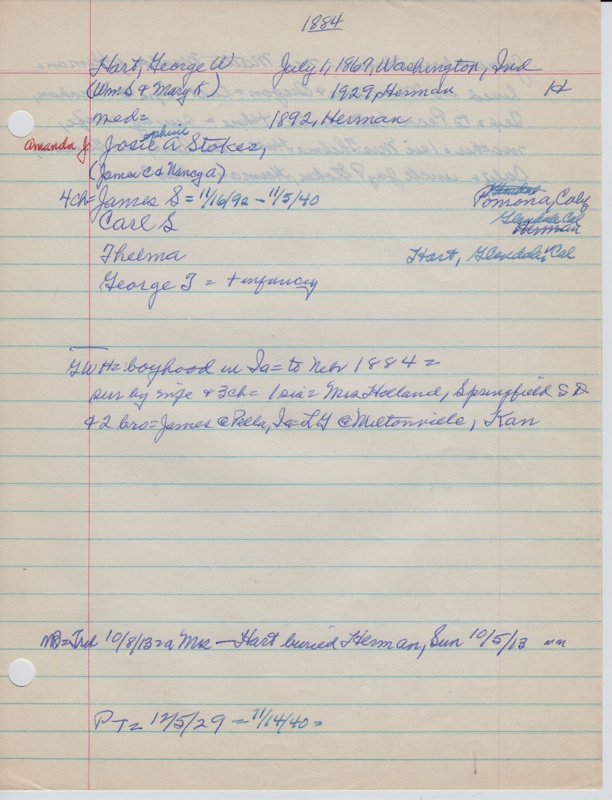 1884
Hart, George W July 1, 1869, Washington, Ind
(Wm S & Mary K) 1929, Herman H
med= 1892, Herman
Amanda J Josie A Stokes,
ephine
(James C & Nancy A)
4ch= James S = 11/16/92 - 11/5/40 Pomona, Calif
Carl S Glendale Cal
Herman
Thelma Hart, Glendale, Cal
George T = + infancy
GWH= boyhood in Ia= to Nebr 1884=
sur by wife & 3ch= 1 sis= Mrs Holland, Springfield S D
& 2 bro= James @ Pella, Ia= L Y @ Miltonville, Kan
NB= 10/8/13= a Mrs — Hart buried Herman, Sun 10/5/13
P T= 12/5/29 = 11/14/40=